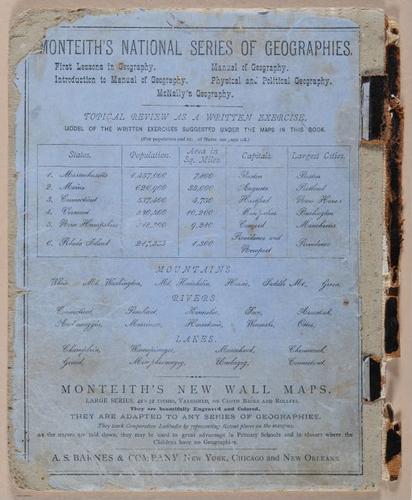 MONTEITH'S NATIONAL SERIES OF GEOGRAPHIES.
First Lessons in Geography. Manual of Geography.
Introduction to Manual of Geography. Physical and Political Geography.
McNally's Geography.
TOPICAL REVIEW AS A WRITTEN EXERCISE.
MODEL OF THE WRITTEN EXERCISES SUGGESTED UNDER THE MAPS IN THIS BOOK.
States. Population. Area in Sq. Miles. Capitals. Largest Cities.
1. Massachusetts 1,457,000 7,800 Boston Boston
2. Maine 626,000 Augusta Portland
3. Connecticut 537,400 4,750 Hartford New Haven
4. Vermont 10,200 Montpelier Burlington
5. New Hampshire 9,280 Concord Manchester
6. Rhode Island 217,353 1,300 Providence and Newport Providence
MOUNTAINS
White, Mt. Washington, Mt. Katahdin, Hoosic, Saddle Mt., Green,
RIVERS.
Connecticut, Penobscot, Kennebec, Saco, Aroostook,
Merrimac, Housatonic, Winooski, Otter,
LAKES.
Champlain, Winnipiseogee, Moosehead, Chesuncook,
Grand, Memphremagog, Umbagog, Connecticut,
MONTEITH'S NEW WALL MAPS.
LARGE SERIES, INCHES, VARNISHED, ON CLOTH BACKS AND ROLLERS.
They are beautifully Engraved and Colored.
THEY ARE ADAPTED TO ANY SERIES OF GEOGRAPHIES.
They teach Comparative Latitude by representing distant places on the margins.
As the names are laid down, they may be used to great advantage in Primary Schools and in classes where the
Children have no Geographies.
A. S. BARNES & COMPANY NEW YORK, CHICAGO AND NEW ORLEANS.